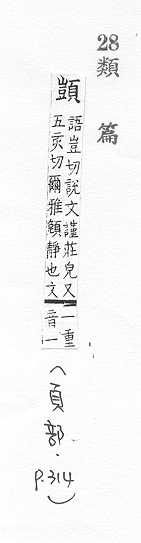 28
類篇
顗
語豈切說文謹莊皃又
五亥切爾雅顗靜也文
一重
音一
（頁部．
p.314）